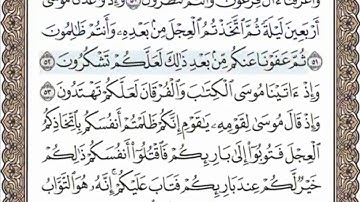 وَأَغْرَقْنَآ ءَالَ فِرْعَوْنَ وَأَنتُمْ تَنظُرُونَ ٥٠ وَإِذْ وَٰعَدْنَا مُوسَىٰٓ
أَرْبَعِينَ لَيْلَةً ثُمَّ ٱتَّخَذْتُمُ ٱلْعِجْلَ مِنۢ بَعْدِهِۦ وَأَنتُمْ ظَٰلِمُونَ
٥١ ثُمَّ عَفَوْنَا عَنكُم مِّنۢ بَعْدِ ذَٰلِكَ لَعَلَّكُمْ تَشْكُرُونَ ٥٢
وَإِذْ ءَاتَيْنَا مُوسَى ٱلْكِتَٰبَ وَٱلْفُرْقَانَ لَعَلَّكُمْ تَهْتَدُونَ ٥٣
وَإِذْ قَالَ مُوسَىٰ لِقَوْمِهِۦ يَٰقَوْمِ إِنَّكُمْ ظَلَمْتُمْ أَنفُسَكُم بِٱتِّخَاذِكُمُ
ٱلْعِجْلَ فَتُوبُوٓا۟ إِلَىٰ بَارِئِكُمْ فَٱقْتُلُوٓا۟ أَنفُسَكُمْ ذَٰلِكُمْ
خَيْرٌ لَّكُمْ عِندَ بَارِئِكُمْ فَتَابَ عَلَيْكُمْ إِنَّهُۥ هُوَ ٱلتَّوَّابُ